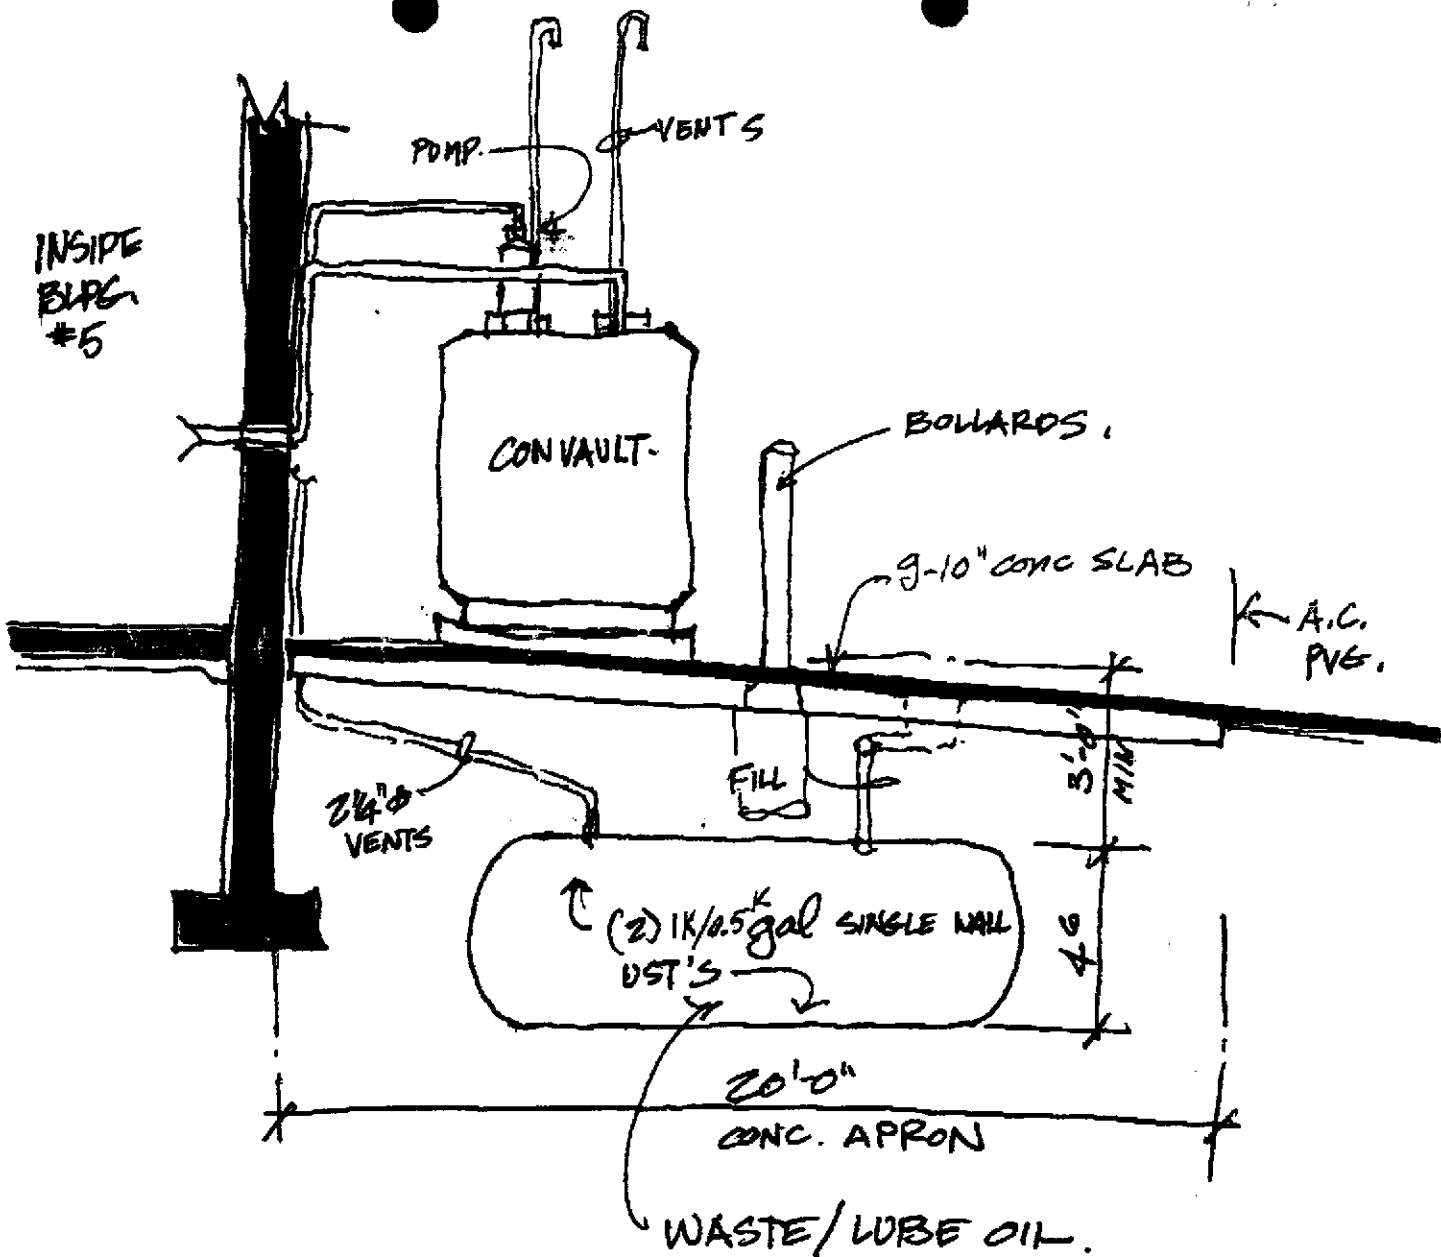 VENTS
PUMP.
INSIDE
BLDG.
#5
CONVAULT.
BOLLARDS.
9-10" CONC SLAB
A.C.
PVG.
3'-0"
MIN
FILL
2¼"⌀
VENTS
(2) 1K/0.5K gal SINGLE WALL
UST'S
46
20'-0"
CONC. APRON
WASTE/LUBE OIL.